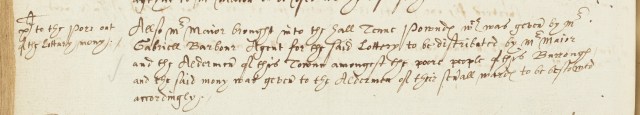 xli to the Pore out
of the Lottary mony.
Also Mr Maior brought into the hall Tenne Powndes wch was geven by Mr
Gabriell Barbour Agent for the said Lottery to be distributed by Mr Maior
and the Aldermen of this Towne amongest the poore people of this Burrough
and the said mony was geven to the Aldermen of their sevall wardes to be bestowed
accordingly.